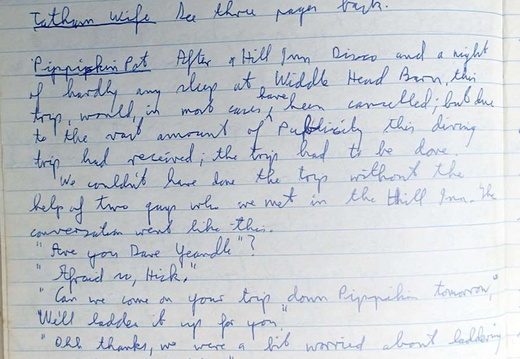 Tatham Wife See three pages back.
Pippikin Pot After a Hill Inn Disco and a night
of hardly any sleep at Widdle Head Barn, this
trip, would, in most cases, have been cancelled; but due
to the vast amount of Publicity this diving
trip had received; the trip had to be done
We couldn't have done the trip without the
help of two guys who we met in the Hill Inn. The
conversation went like this.
"Are you Dave Yeandle"?
"Afraid so, Hick."
"Can we come on your trip down Pippikin tomorrow,"
We'll ladder it up for you."
"Ohh thanks, we were a bit worried about laddering